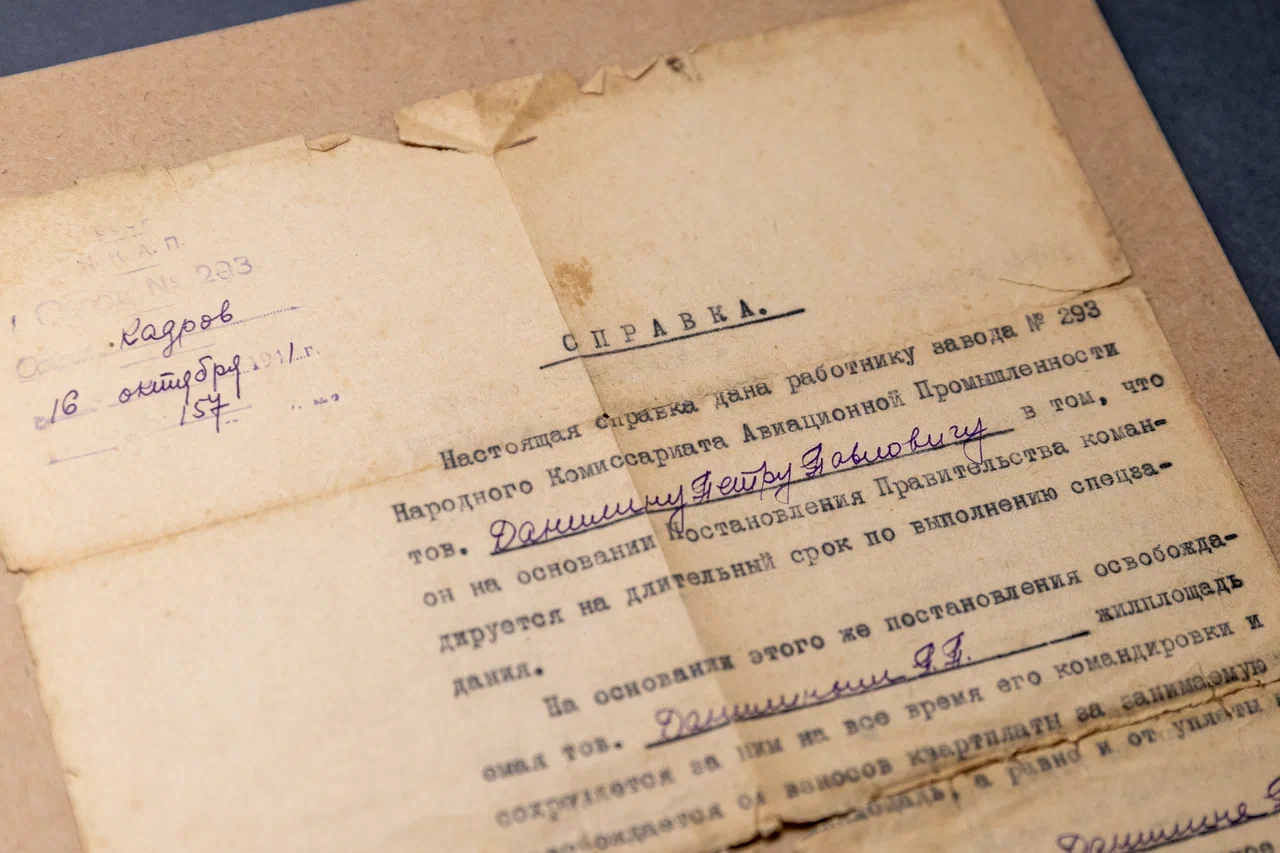 Н.К.А.П.
Завод № 293
Кадров
16 октября 1941 г.
157
СПРАВКА.
Настоящая справка дана работнику завода № 293
Народного Комиссариата Авиационной Промышленности
тов. Данилину Петру Павловичу в том, что
он на основании Постановления Правительства коман-
дируется на длительный срок по выполнению спецза-
дания.
На основании этого же постановления освобожда-
емая тов. Данилиным П.П. жилплощадь
сохраняется за ним на все время его командировки и
освобождается от взносов квартплаты за занимаемую
а равно и от уплаты
Данилина